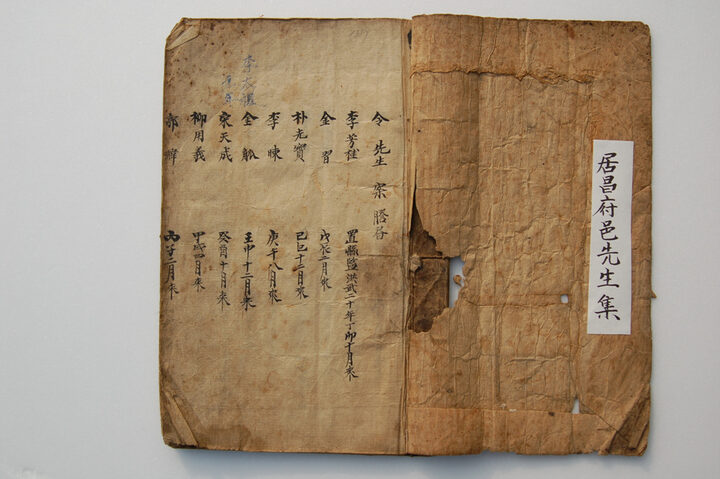 居昌府邑先生集
令先生案
李芳桂 置縣監洪武二十年丁卯十月來
金習 戊辰五月來
朴允實 己巳十二月來
李悚 庚午八月來
金 壬申十二月來
宋天成 癸酉十月來
柳用義 甲戌四月來
郭 丙子二月來
李太祖
元年